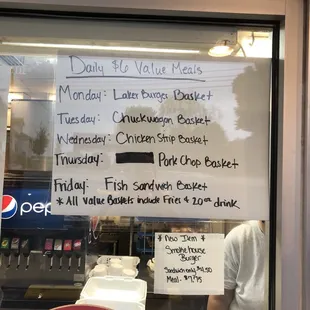 Daily $6 Value Meals
Monday: Laker Burger Basket
Tuesday: Chuckwagon Basket
Wednesday: Chicken Strip Basket
Thursday: Pork Chop Basket
Friday: Fish Sandwich Basket
* All Value Baskets include Fries & 20oz drink
pepsi
* New Item *
Smokehouse
Burger
Sandwich only $4.50
Meal - $7.75